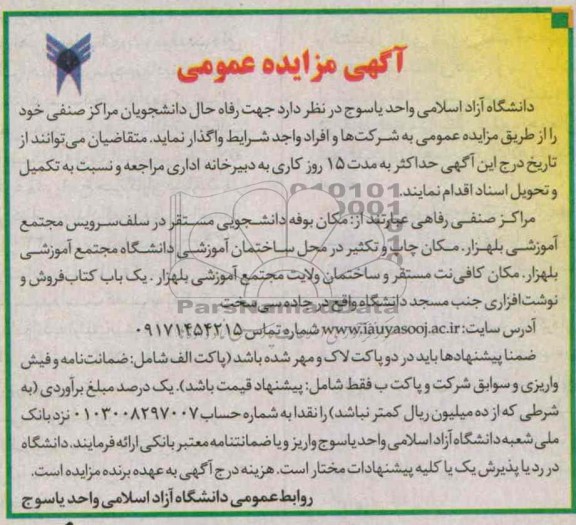 آگهی مزایده عمومی
دانشگاه آزاد اسلامی واحد یاسوج در نظر دارد جهت رفاه حال دانشجویان مراکز صنفی خود
را از طریق مزایده عمومی به شرکت‌ها و افراد واجد شرایط واگذار نماید. متقاضیان می‌توانند از
تاریخ درج این آگهی حداکثر به مدت ۱۵ روز کاری به دبیرخانه اداری مراجعه و نسبت به تکمیل
و تحویل اسناد اقدام نمایند.
مراکز صنفی رفاهی عبارتند از: مکان بوفه دانشجویی مستقر در سلف‌سرویس مجتمع
آموزشی بلهزار، مکان چاپ و تکثیر در محل ساختمان آموزشی دانشگاه مجتمع آموزشی
بلهزار. مکان کافی‌نت مستقر و ساختمان ولایت مجتمع آموزشی بلهزار. یک باب کتاب‌فروش و
نوشت‌افزاری جنب مسجد دانشگاه واقع در جاده سی‌سخت
ParsNamadData
آدرس سایت: www.iauyasooj.ac.ir شماره تماس ۰۹۱۷۱۴۵۴۲۱۵
ضمنا پیشنهادها باید در دو پاکت لاک و مهر شده باشد (پاکت الف شامل: ضمانت‌نامه و فیش
واریزی و سوابق شرکت و پاکت ب فقط شامل: پیشنهاد قیمت باشد). یک درصد مبلغ برآوردی (به
شرطی که از ده میلیون ریال کمتر نباشد) را نقدا به شماره حساب ۰۱۰۳۰۰۸۲۹۷۰۰۷ نزد بانک
ملی شعبه دانشگاه آزاد اسلامی واحد یاسوج واریز و یا ضمانتنامه معتبر بانکی ارائه فرمایند. دانشگاه
در رد یا پذیرش یک یا کلیه پیشنهادات مختار است. هزینه درج آگهی به عهده برنده مزایده است.
روابط عمومی دانشگاه آزاد اسلامی واحد یاسوج